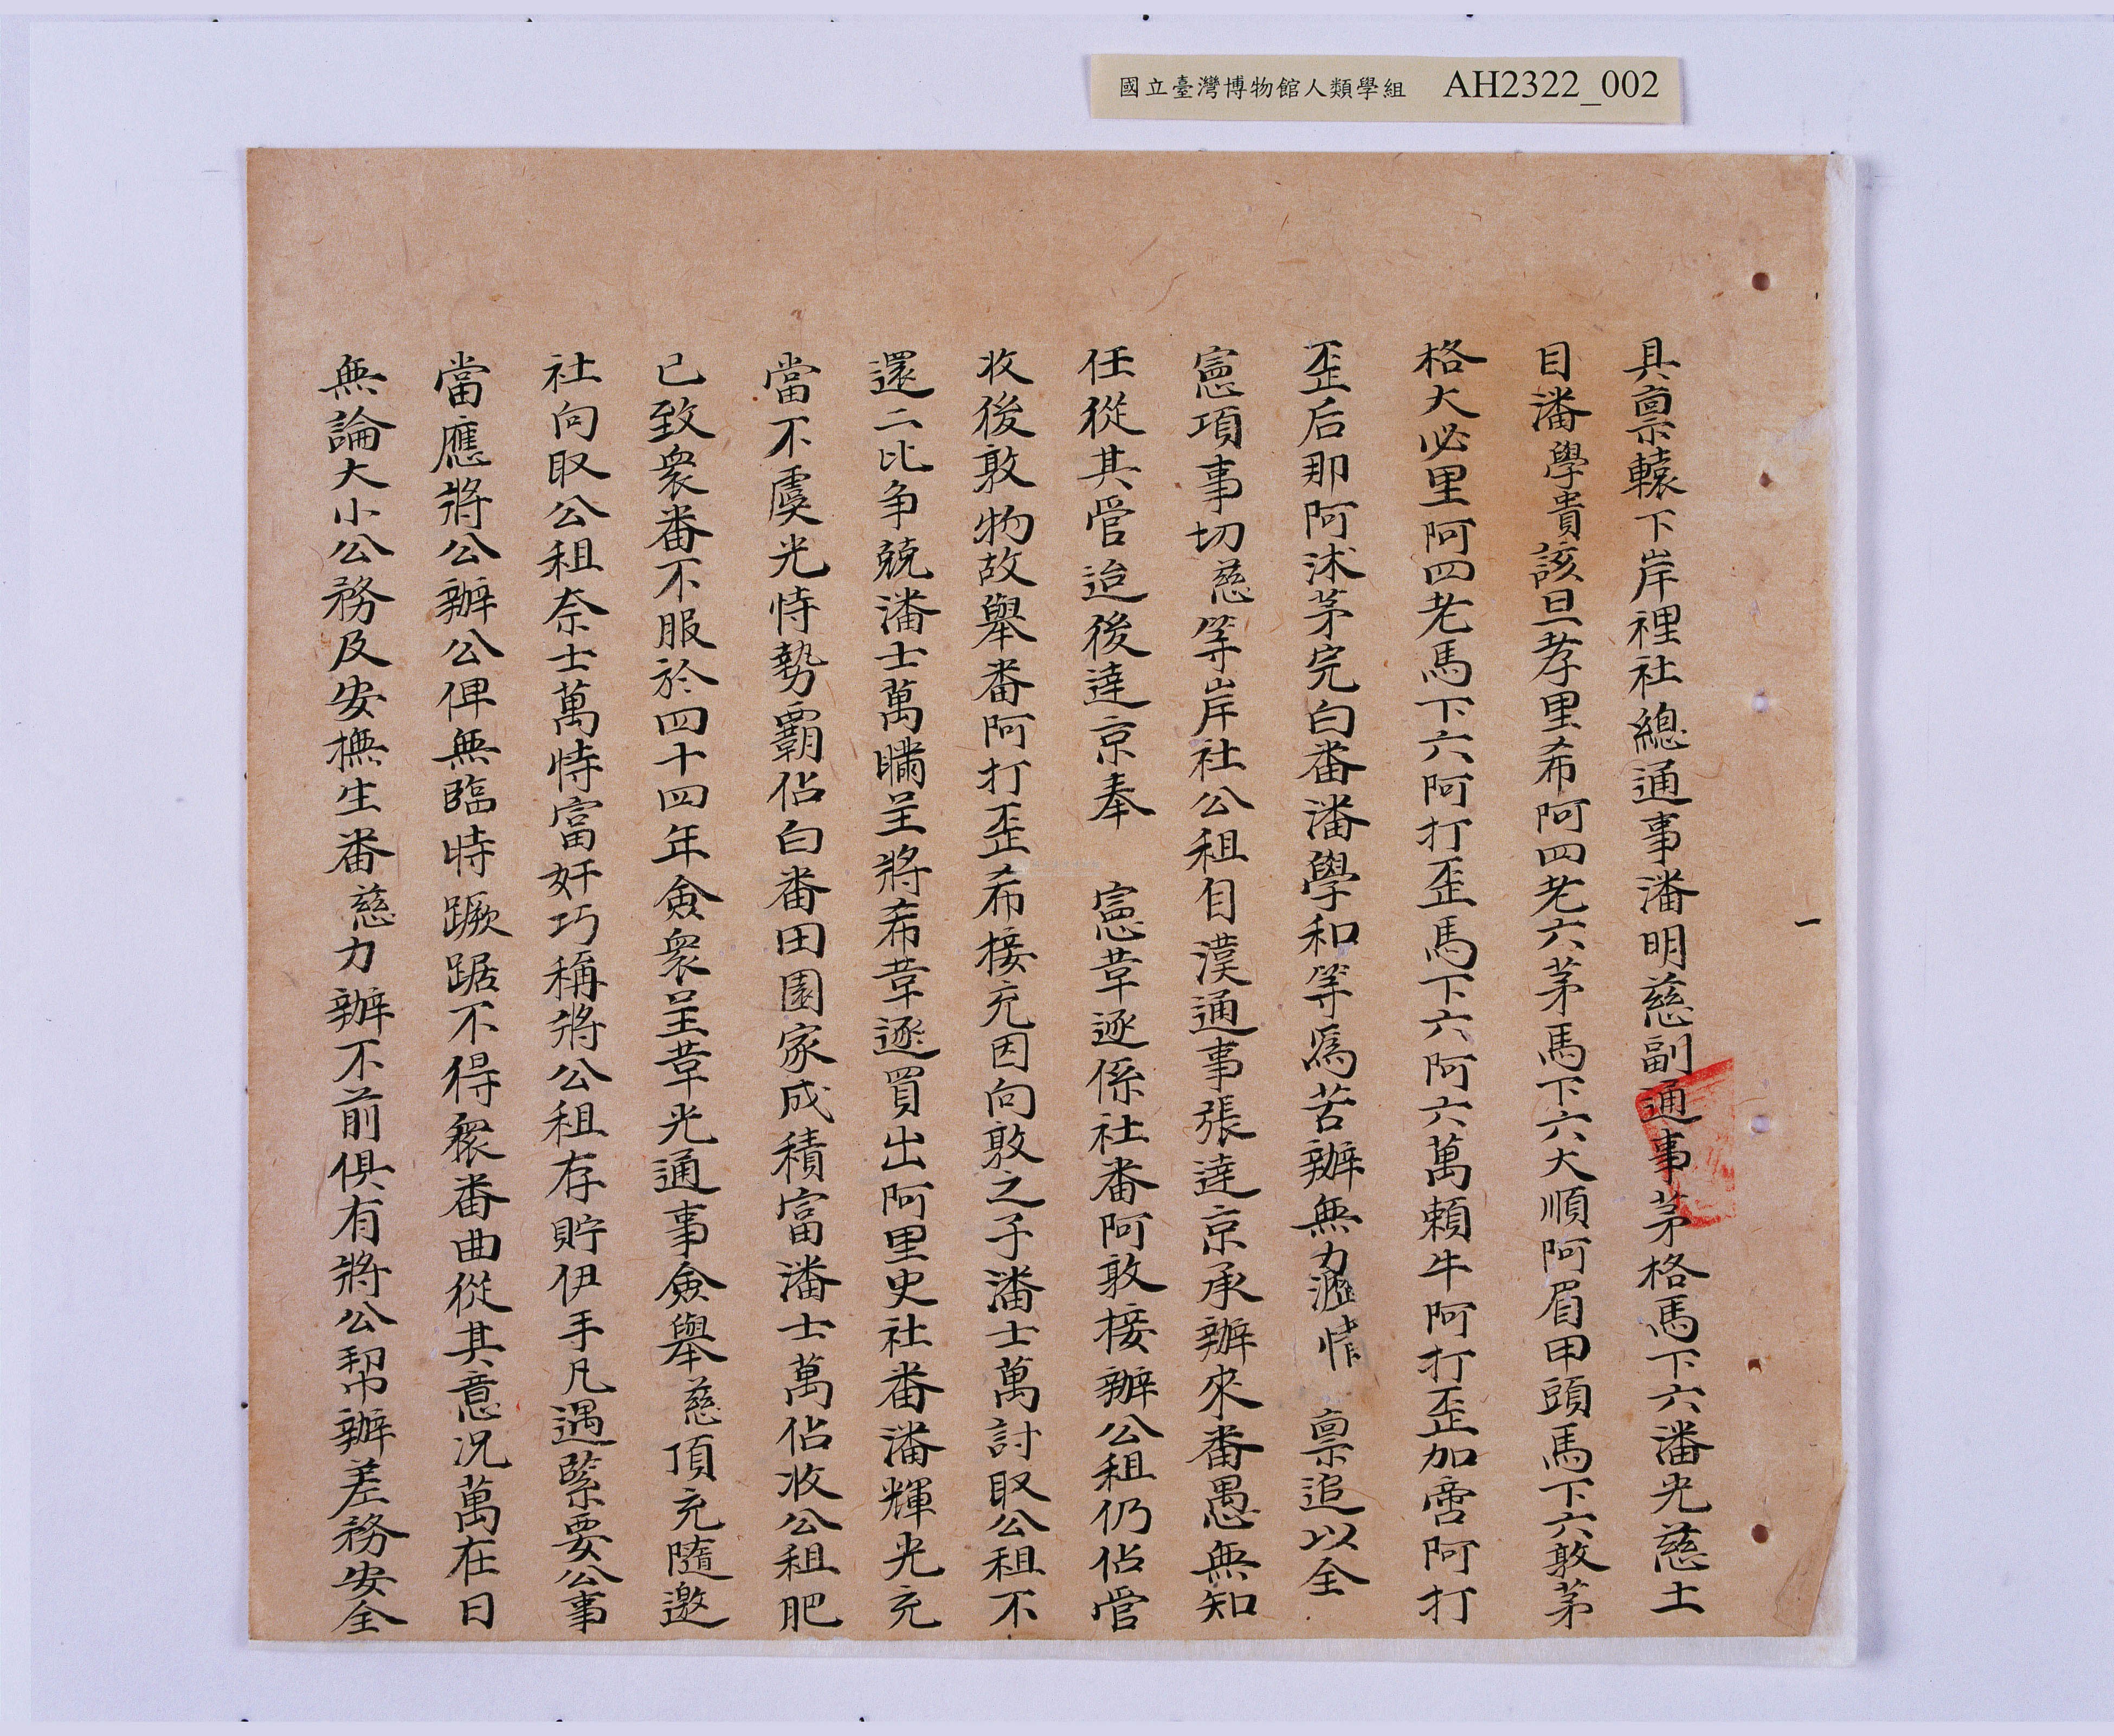 國立臺灣博物館人類學組 AH2322_002
一
具稟轅下岸裡社總通事潘明慈副通事茅格馬下六潘光慈土
目潘學貴該旦孝里希阿四老六茅馬下六大順阿眉甲頭馬下六敦茅
格大必里阿四老馬下六阿打歪馬下六阿六萬賴牛阿打歪加雹阿打
歪后那阿沭茅完白番潘學和等為苦辦無力瀝情 稟追以全
憲項事切慈等岸社公租自漢通事張達京承辦來番愚無知
任從其管迨後達京奉 憲革逐係社番阿敦接辦公租仍佔管
收後敦物故舉番阿打歪希接充因向敦之子潘士萬討取公租不
還二比争兢潘士萬瞞呈將希革逐買出阿里史社番潘輝光充
當不虞光恃勢霸佔白番田園家成積富潘士萬佔收公租肥
已致衆番不服於四十四年僉衆呈革光通事僉舉慈頂充隨邀
社向取公租奈士萬恃富奸巧稱將公租存貯伊手凡遇緊要公事
當應將公辦公俾無臨時蹶踞不得衆番曲從其意况萬在日
無論大小公務及安撫生番慈力辦不前俱有將公帮辦差務安全